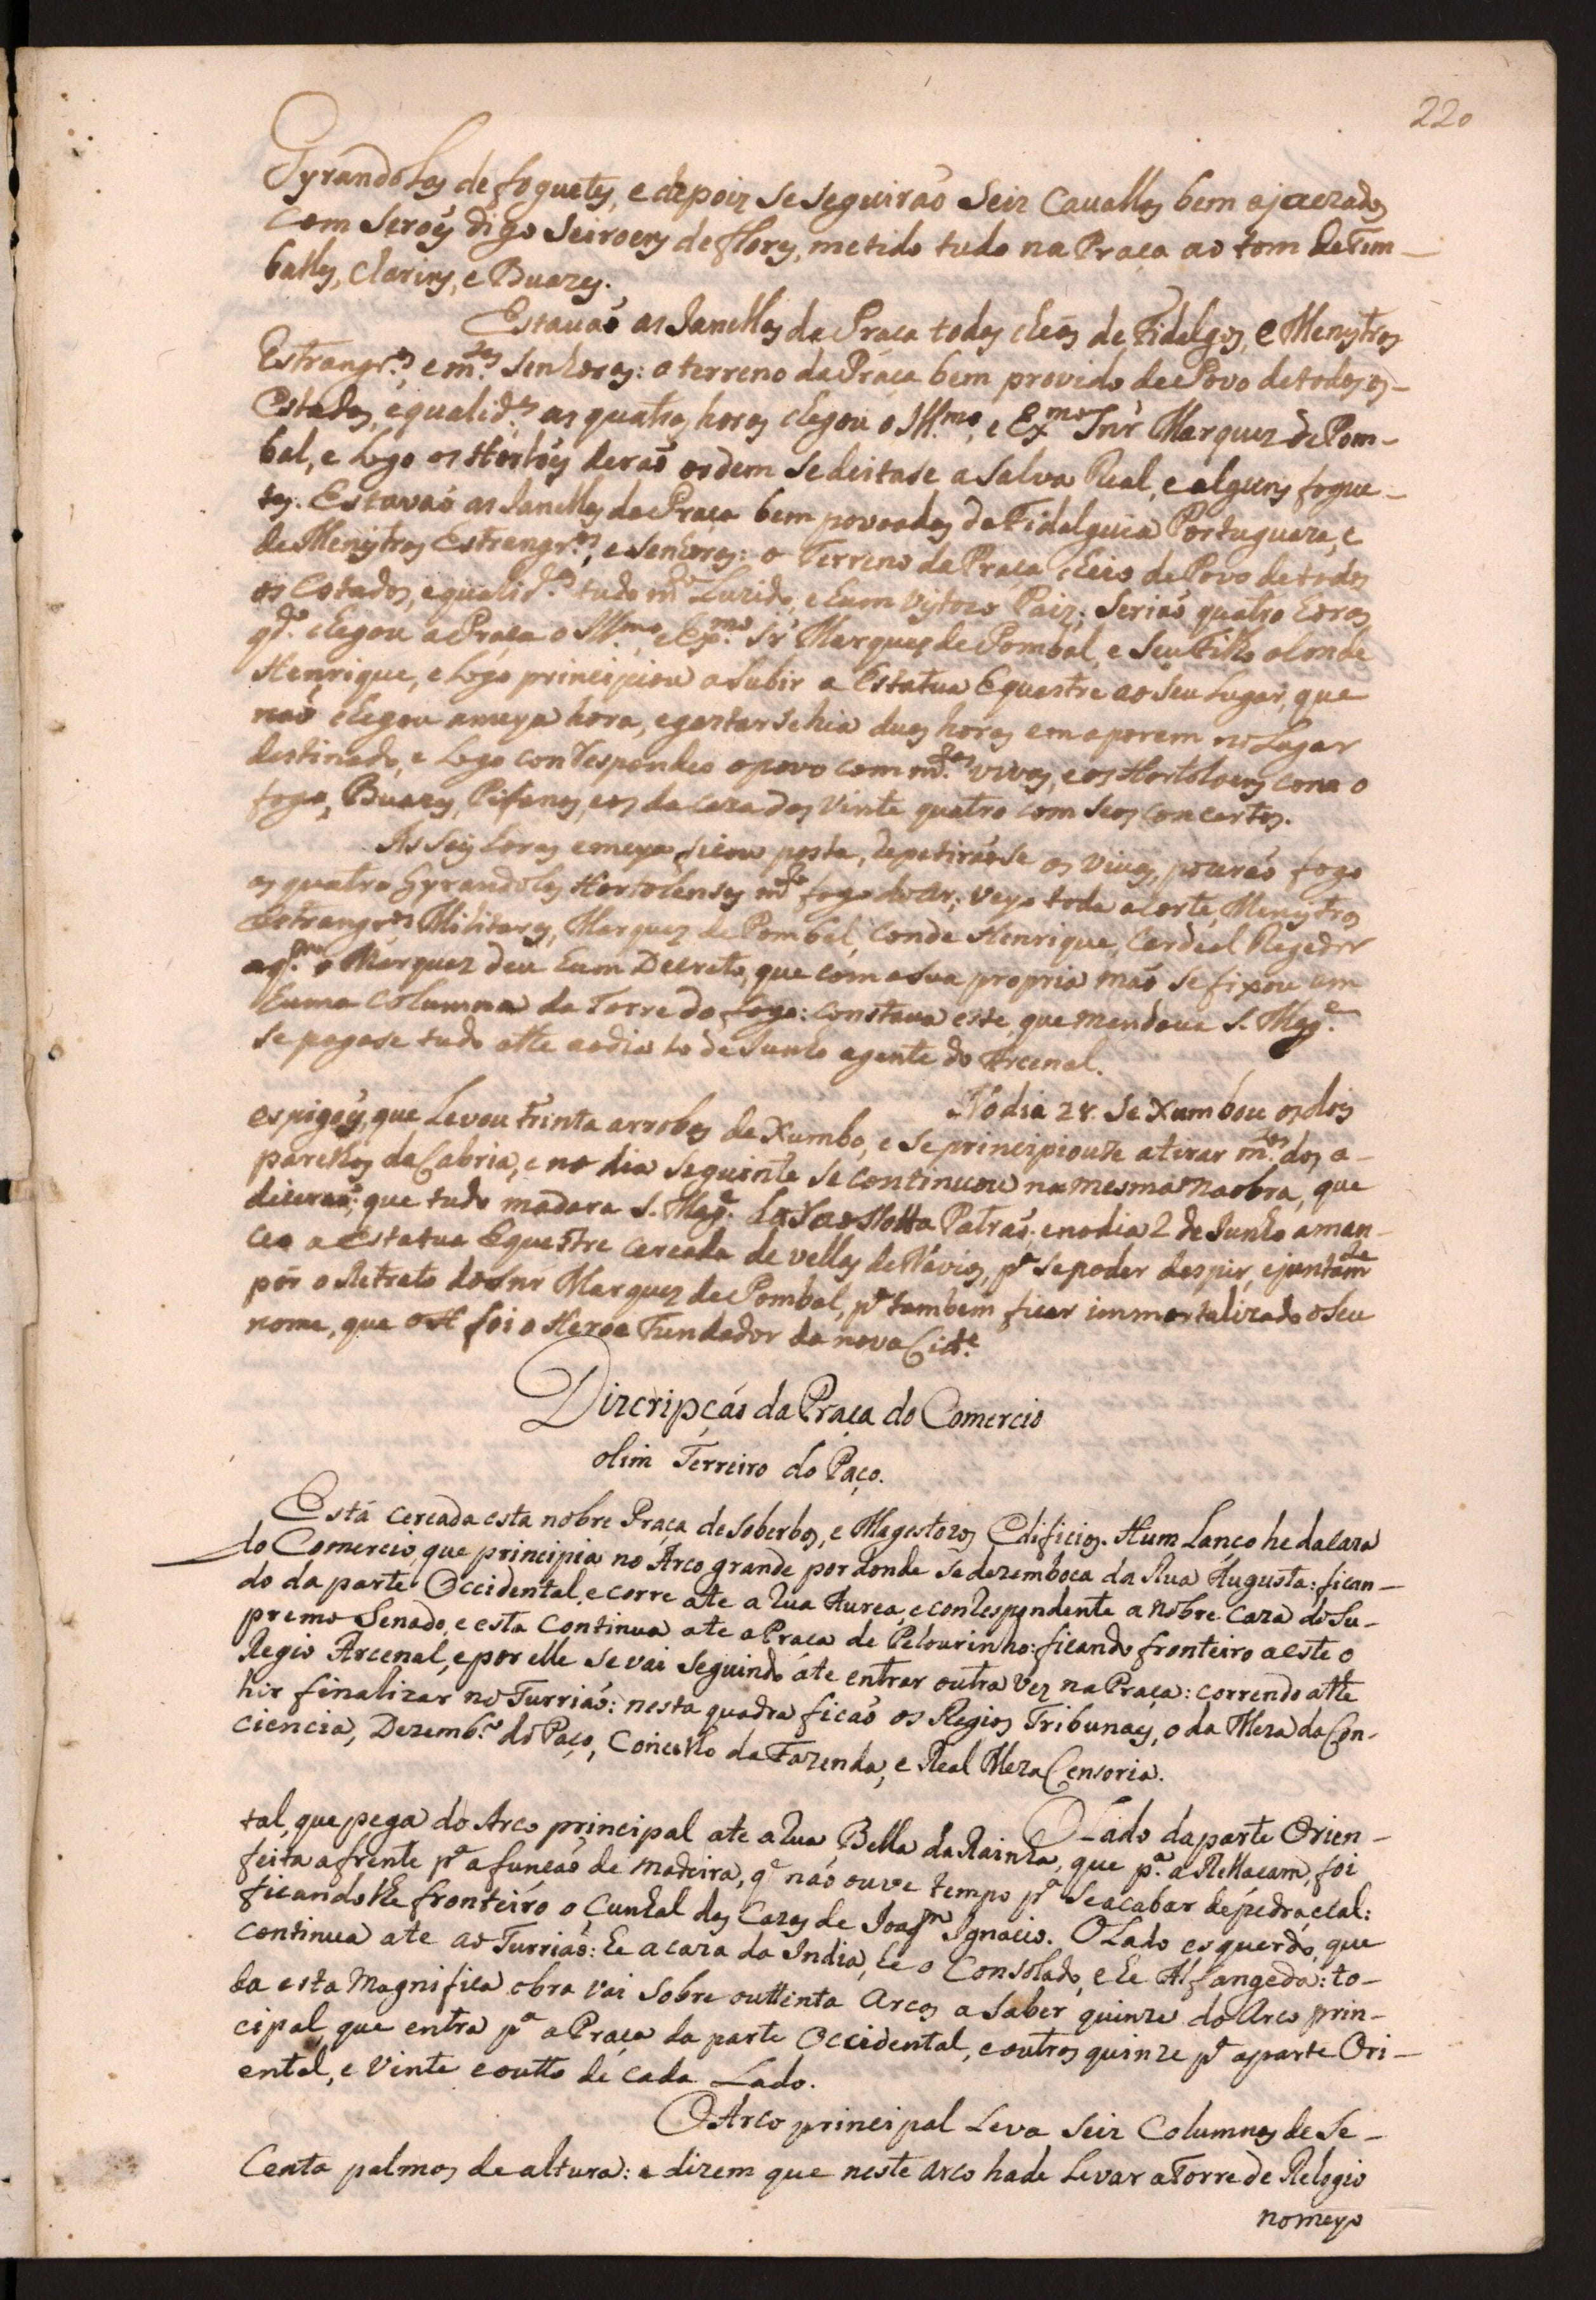 220
Gyrandolas de foguetes, e depoiz se seguirão Seiz Cavallos bem ajaezados
com Seroẽs digo Seiroens de flores, metido tudo na Praça ao tom de Tim-
balles, Clarins, e Buazes.
Estavão as Janellas da Praça todas cheas de Fidalgos, e Menystros
Estrangr.os, e m.tas Senhoras: o terreno da Praça bem provido de Povo de todos os
Estados, e qualid.es as quatro horas chegou o Ill.mo, e Ex.mo Snr̃ Marquez de Pom-
bal, e logo os Hortoẽs derão ordem se deitase a Salva Real, e alguns fogue-
tes. Estavão as Janellas da Praça bem povoadas da Fidalguia Portugueza, e
de Menystros Estrangr.os, e Senhoras: o Terreno da Praça cheio de Povo de todos
os Estados, e qualid.es tudo m.to Luzido, e hum vystozo Paiz; Serião quatro horas
q.do chegou a Praça o Ill.mo, e Ex.mo Sr̃ Marques de Pombal, e Seu Filho o Conde
Henrique, e logo principiou a Subir a Estatua Equestre ao Seu Lugar, que
não chegou a meya hora, e gastarsehia duas horas em a porem no Lugar
destinado, e logo correspondeo o povo com m.tos vivas, e os Hortoloens com o
fogo, Buazes, Pifanos, e os da Caza dos Vinte quatro com seos concertos.
As Seis horas e meya ficou posta, repetirãose os Vivas, pourão fogo
as quatro Gyrandolas Hortolenses m.to fogo do ar; veyo toda a Corte, Menystros
Estrangr.os, Militares, Marquez de Pombal, Conde Henrique, Cardeal Regedor
aq.m o Marquez deu hum Decreto, que com a Sua propria mão se fixou em
huma Columna da Torre do fogo: constava este que mandava S. Mag.e
se pagase tudo athe ao dia 10 de Junho a gente do Arcenal.
No dia 28. se Xumbou os dois
espigoẽs, que Levou trinta arrobas de Xumbo, e se principiouze a tirar m.tos dos a-
parelhos da Cabria, e no dia seguinte se continuou na mesma Naobra, que
diceraõ; que tudo mãdara S. Mag.e Motta Patrão; e no dia 2 de Junho aman-
ceo a Estatua Equestre cercada de vellas de Navios, p.a se poder despir, e juntam.te
pôr o Retrato do Snr Marquez de Pombal, p.a tambem ficar immortalizado o Seu
nome, que foi o Heroe Fundador da nova Cid.e
Dizcripção da Praça do Comercio
olim Terreiro do Paço.
Está cercada esta nobre Praça de Soberbos, e Magestozos Edificios. Hum Lanço he da Caza
do Comercio, que principia no Arco grande por donde se dezemboca da Rua Augusta: fican-
do da parte Occidental, e corre ate a Rua Aurea, e correspondente a nobre Caza do Su-
premo Senado, e esta continua ate a Praça de Pelourinho: ficando fronteiro a este o
Regio Arcenal, e por elle se vai seguindo áte entrar outra vez na Praça: correndo athe
hir finalizar no Turrião: nesta quadra ficão os Regios Tribunaes, o da Meza da Con-
ciencia, Dezemb.o do Paço, Concelho da Fazenda, e Real Meza Censoria.
O Lado da parte Orien-
tal, que pega do Arco principal ate a Rua Bella da Rainha, que p.a a Rellacam, foi
feita a frente p.a a função de madeira, q.e não ouve tempo p.a se acabar de pedra, e cal:
ficandolhe fronteiro o Cunhal das Cazas de Joaq.m Ignacio. O Lado esquerdo, que
continua ate ao Turrião: he a caza da India, he o Consolado, e he Alfangeda: to-
da esta Magnifica obra vai sobre outtenta Arcos a saber quinze do Arco prin-
cipal, que entra p.a a Praça da parte Occidental, e outros quinze p.a a parte Ori-
ental, e Vinte e outto de cada Lado.
O Arco principal Leva Seiz Columnas de Se-
Centa palmos de altura: e dizem que neste Arco hade Levar a Torre de Relogio
no meyo